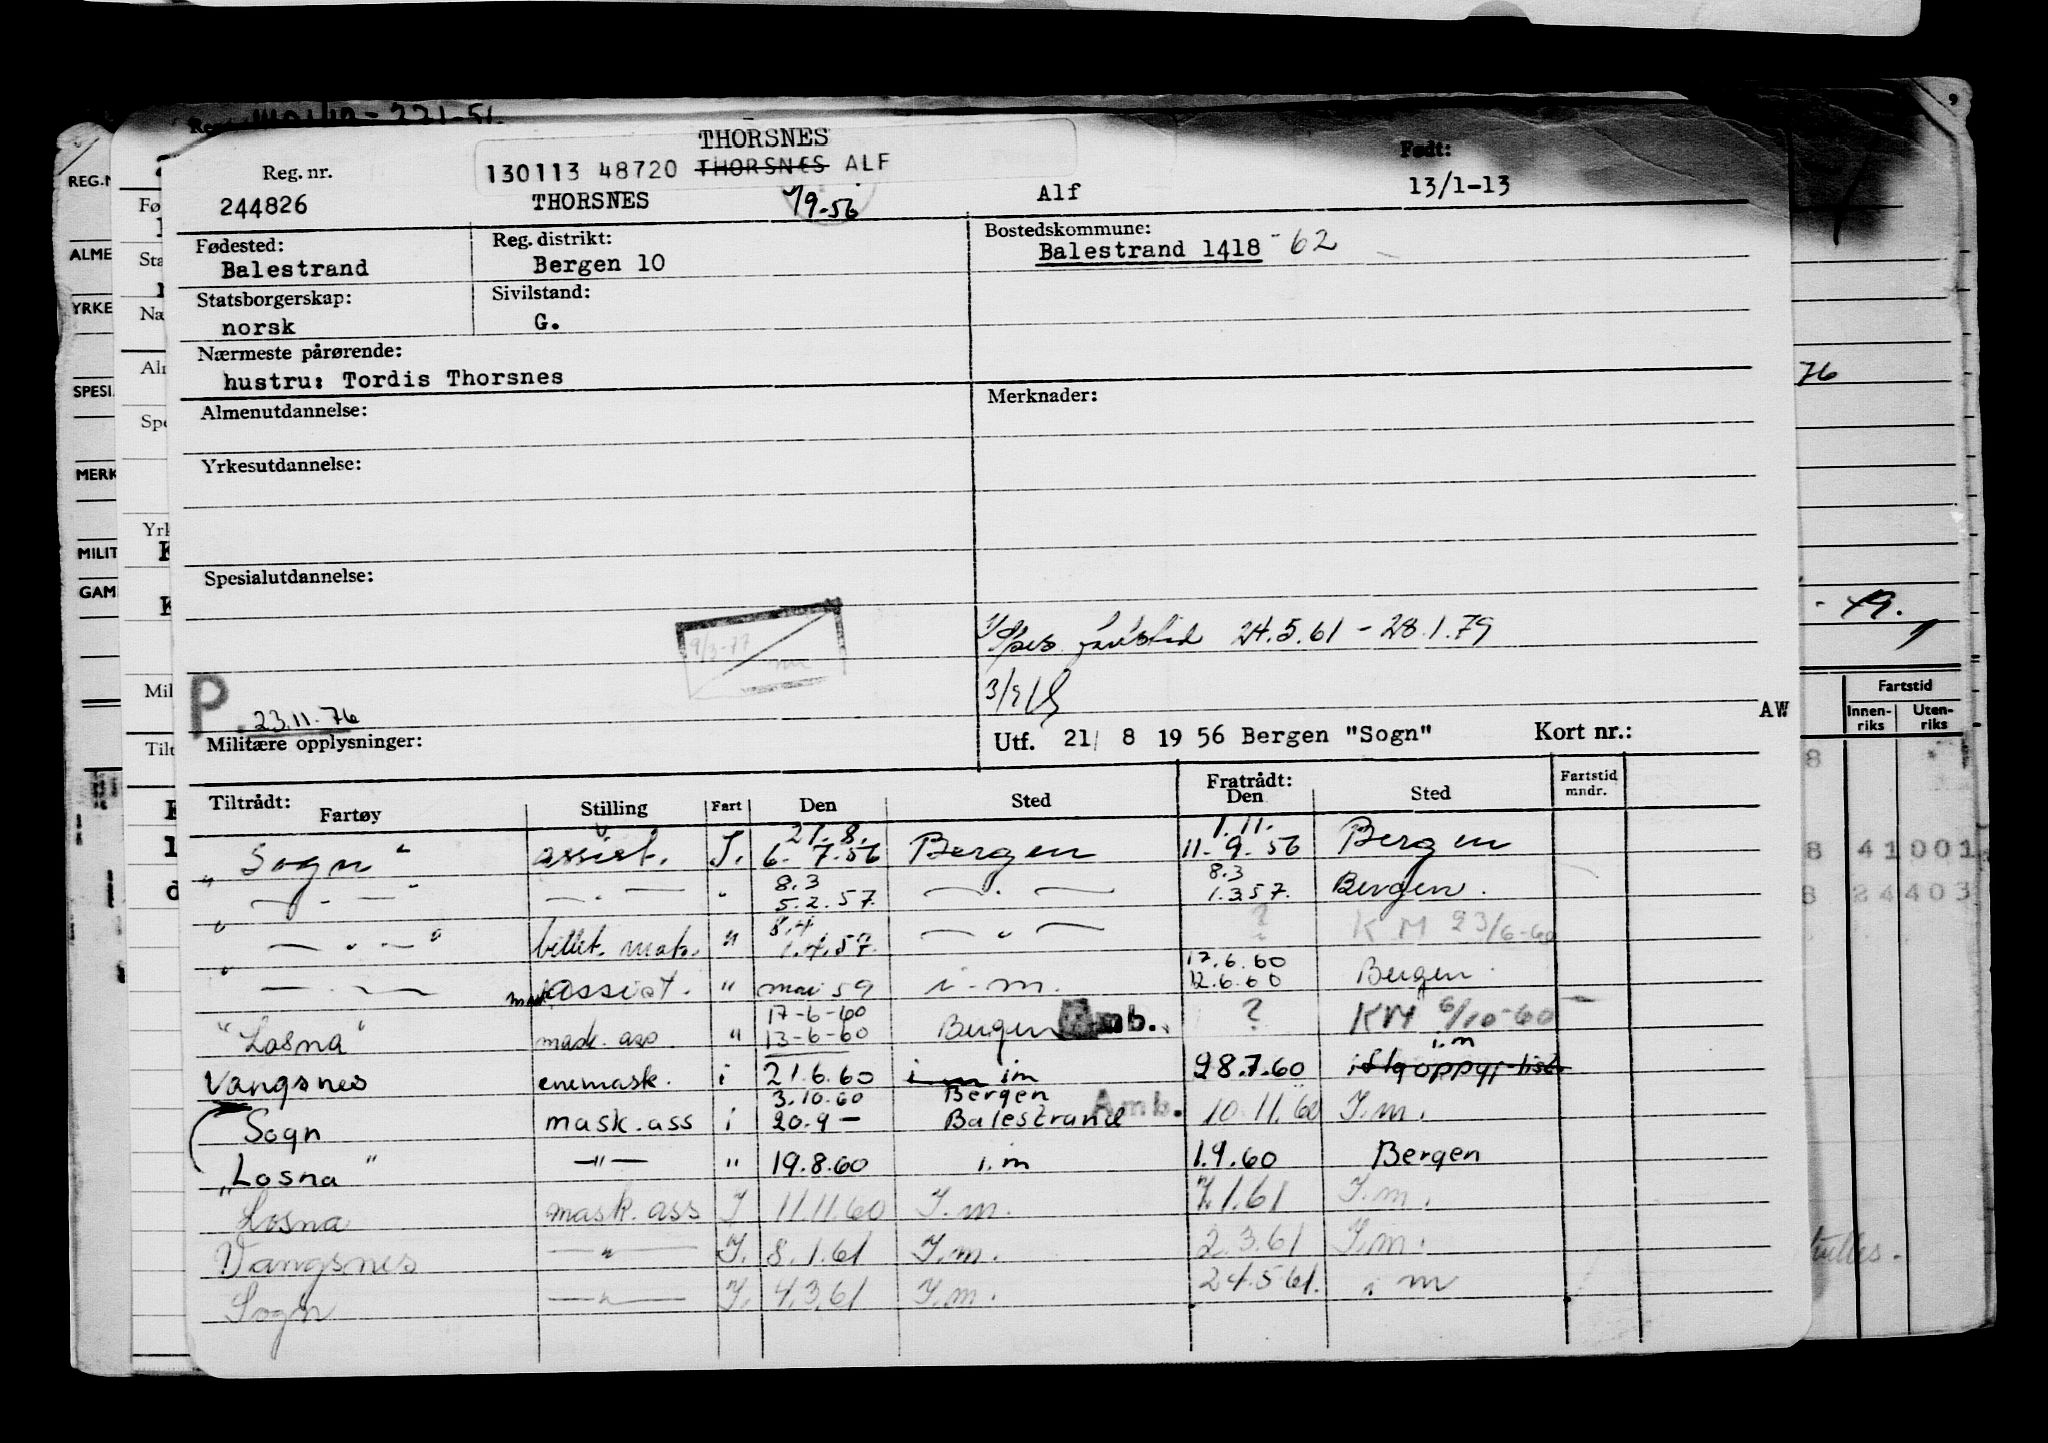 THORSNES
130113 48720 THORSNES ALF
Reg. nr.
Født:
244826 THORSNES 19-56 Alf 13/1-13
Fødested: Reg. distrikt: Bostedskommune:
Balestrand Bergen 10 Balestrand 1418 - 62
Statsborgerskap: Sivilstand:
norsk G.
Nærmeste pårørende:
hustru: Tordis Thorsnes
Almenutdannelse: Merknader:
Yrkesutdannelse:
Spesialutdannelse:
24.5.61 - 28.1.79
9/3-77
P. 23.11.76
AW
Militære opplysninger: Utf. 21/ 8 19 56 Bergen "Sogn" Kort nr.:
Tiltrådt: Fratrådt: Fartstid
Fartøy Stilling Fart Den Sted Den Sted mndr.
21.8. 1.11.
"Sogn" assist. I. 6.7.56 Bergen 11.9.56 Bergen
8.3 8.3
— " — — . — " 5.2.57. — . — 1.3.57. Bergen.
8.4 ?
" — . — " billet. mask. " 1.4.57. — " — KM 23/6-60
17.6.60
" — . — mask assist. " mai 59 i.m. 12.6.60 Bergen
17-6-60
"Losna" mask. ass " 13-6-60 Bergen Amb. ? KM 6/10-60
i.m
Vangsnes enemask. i 21.6.60 i m im 28.7.60
3.10.60 Bergen
Sogn mask. ass i 20.9 — Balestrand Amb. 10.11.60 I.m.
"Losna" —"— " 19.8.60 i.m 1.9.60 Bergen
Losna mask. ass I 11.11.60 I.m. 7.1.61 I.m.
Vangsnes —"— I. 8.1.61 I.m. 2.3.61 I.m.
Sogn —"— I. 4.3.61 I.m. 24.5.61. i m
REG.N
ALME
YRKE
SPESI
MERK
MILIT
GAM
Sta
Næ
Alr
Spe
Yrk
Mil
Tilt
76
- 49.
Fartstid
Innen- Uten-
riks riks
8
8 41001
8 24403